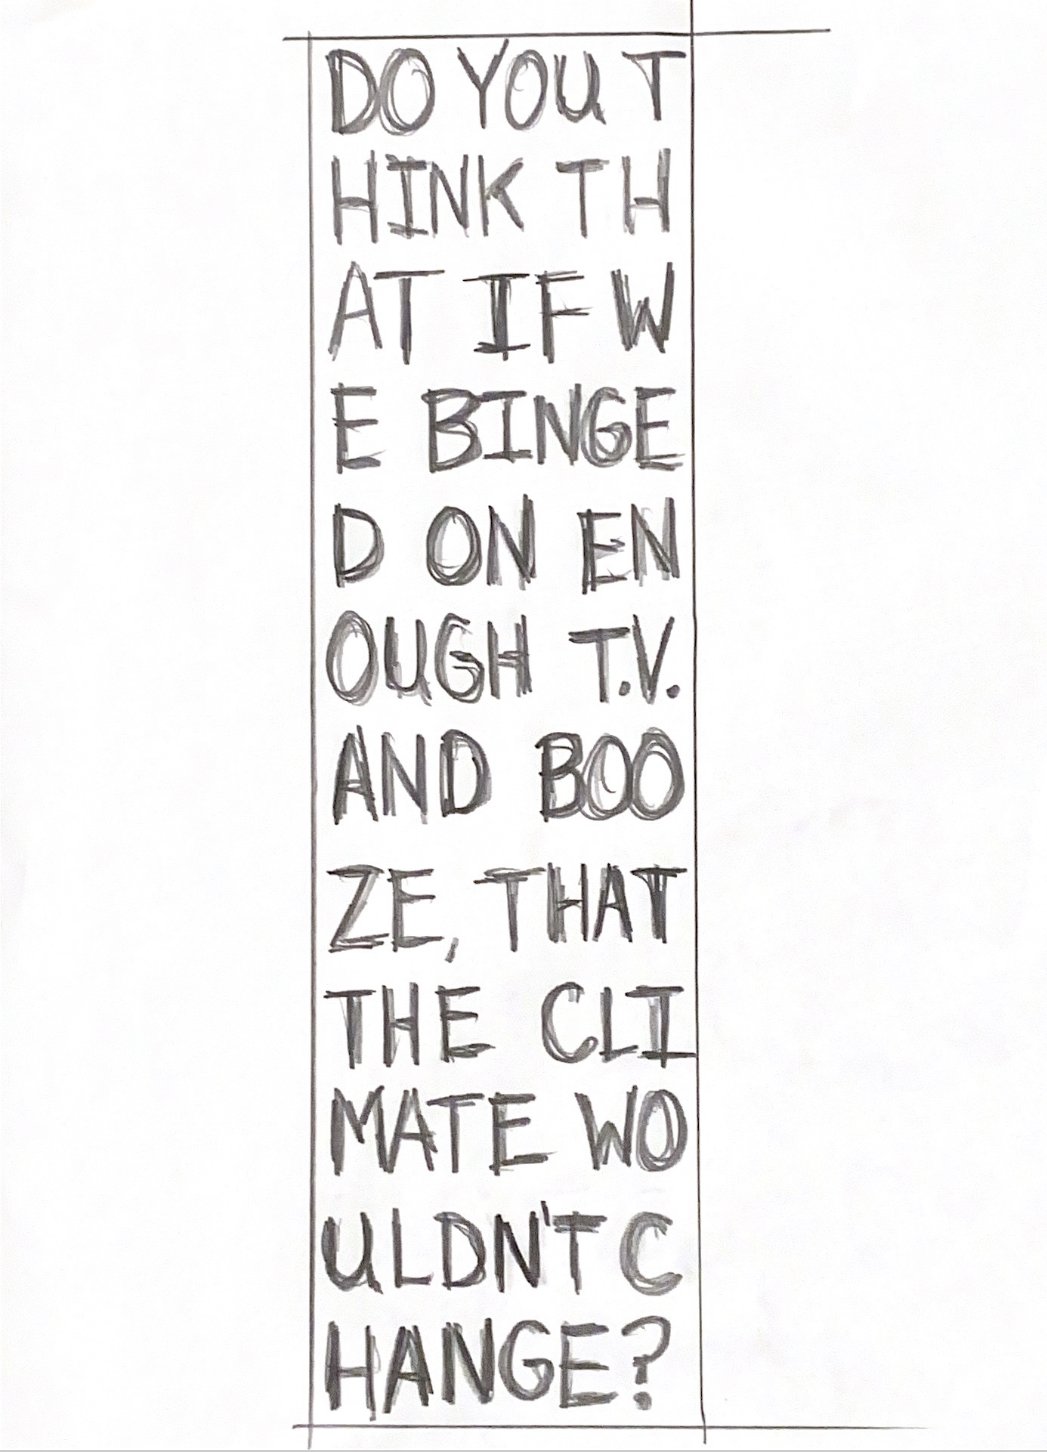 DO YOU T
HINK TH
AT IF W
E BINGE
D ON EN
OUGH T.V.
AND BOO
ZE, THAT
THE CLI
MATE WO
ULDN'T C
HANGE?